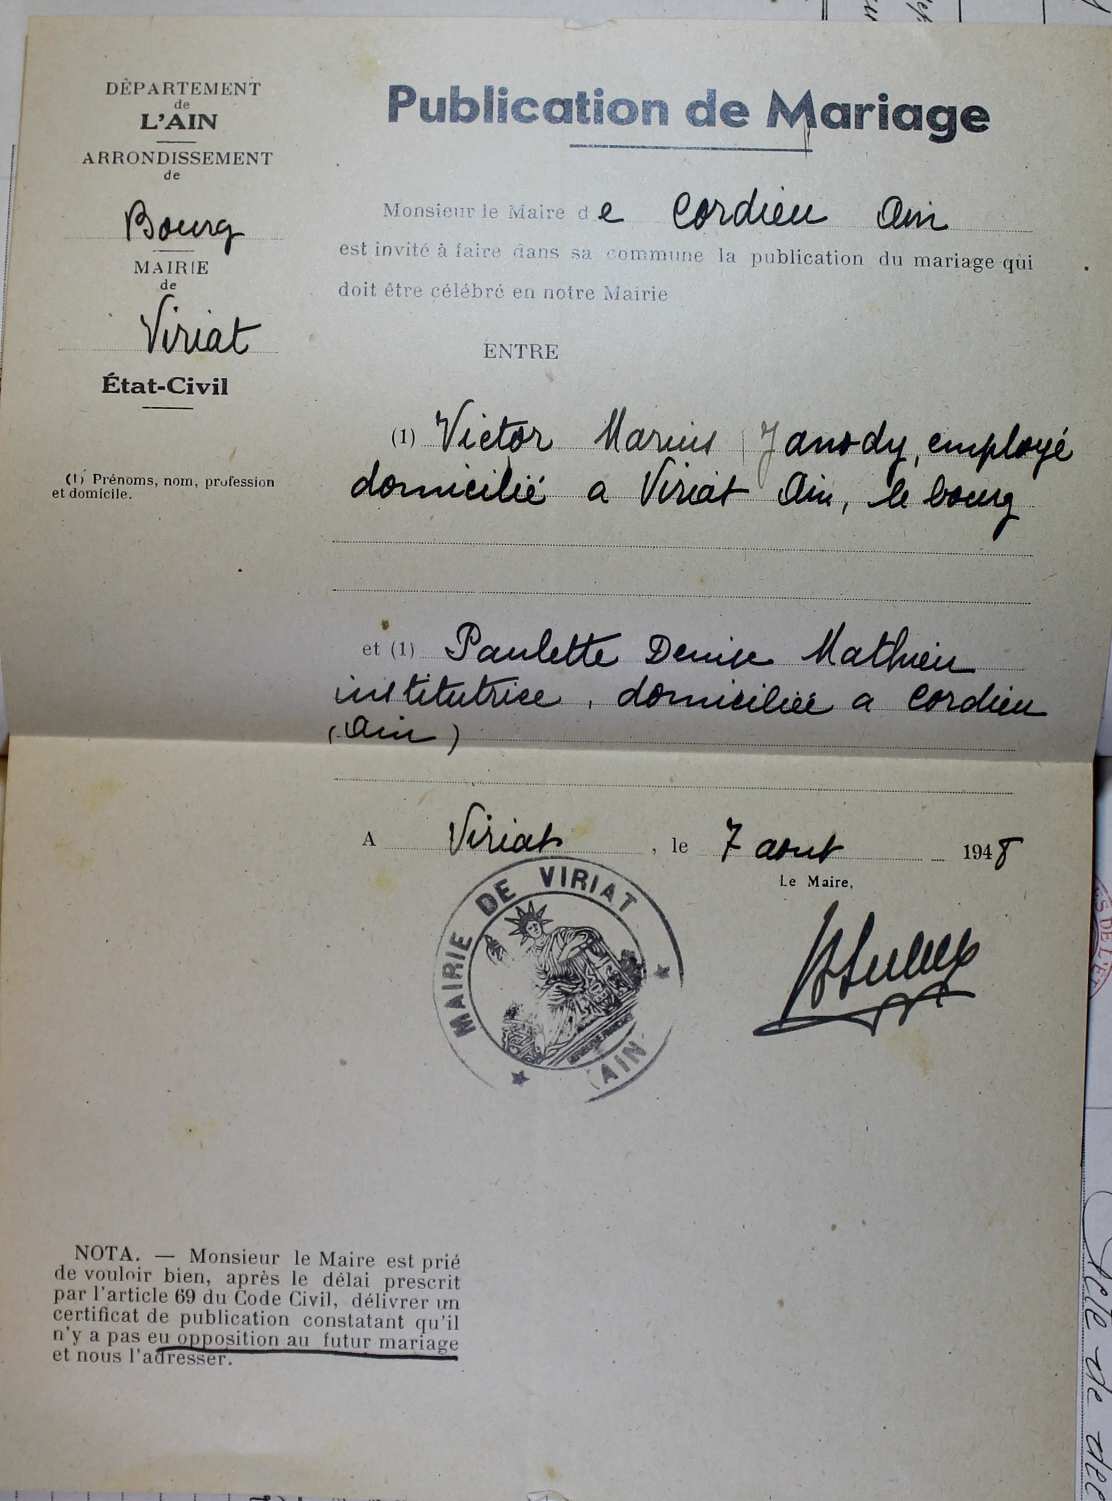 DÉPARTEMENT
de
L'AIN
ARRONDISSEMENT
de
Bourg
MAIRIE
de
Viriat
État-Civil
(1) Prénoms, nom, profession
et domicile.
Publication de Mariage
Monsieur le Maire de Cordieu Ain
est invité à faire dans sa commune la publication du mariage qui
doit être célébré en notre Mairie
ENTRE
(1) Victor Marius Janody, employé
domicilié a Viriat Ain, le bourg
et (1) Paulette Denise Mathieu
institutrice, domiciliée a Cordieu
(Ain)
A Viriat, le 7 aout 1948
Le Maire,
MAIRIE DE VIRIAT
(AIN)
NOTA. — Monsieur le Maire est prié
de vouloir bien, après le délai prescrit
par l'article 69 du Code Civil, délivrer un
certificat de publication constatant qu'il
n'y a pas eu opposition au futur mariage
et nous l'adresser.